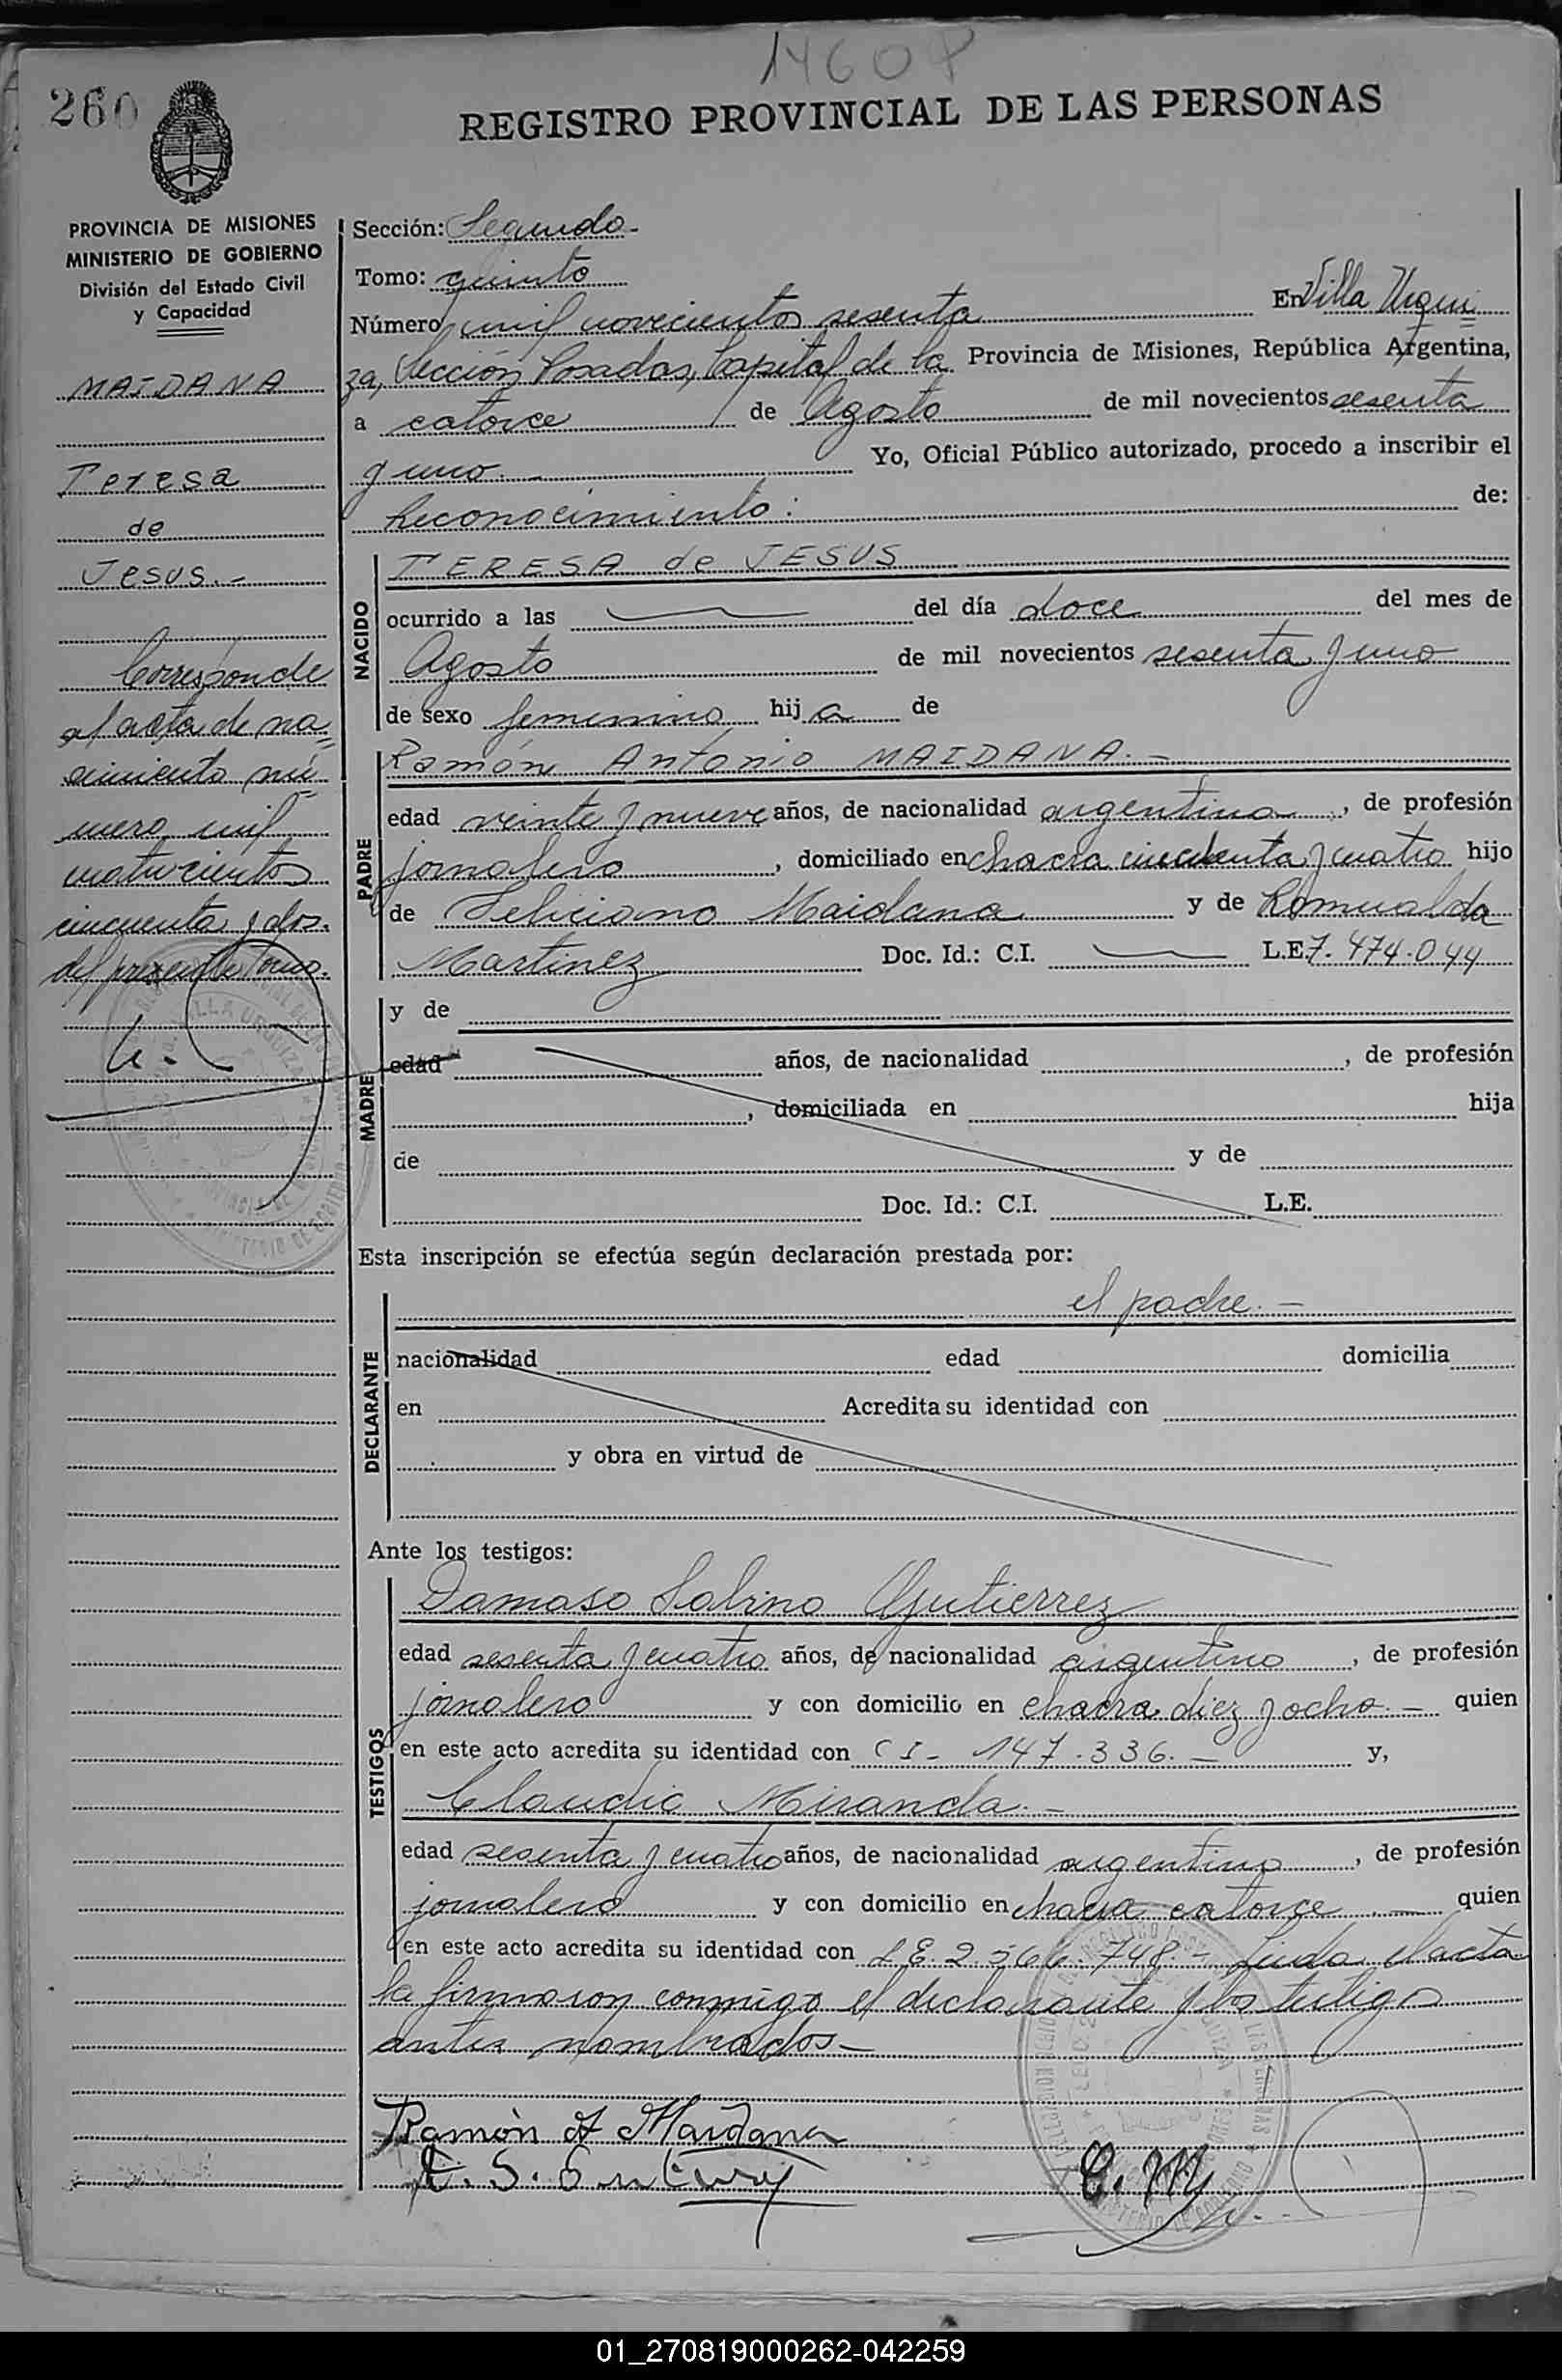 14608
260
REGISTRO PROVINCIAL DE LAS PERSONAS
PROVINCIA DE MISIONES
MINISTERIO DE GOBIERNO
División del Estado Civil
y Capacidad
MAIDANA
Teresa
de
Jesus.-
Corresponde
al acta de na=
cimiento nú=
mero mil
cuatrocientos
cincuenta y dos.
del presente Tomo.
Sección: Segunda-
Tomo: quinto
Número mil novecientos sesenta En Villa Urqui
za, Sección Posadas, Capital de la Provincia de Misiones, República Argentina,
a catorce de Agosto de mil novecientos sesenta
y uno.- Yo, Oficial Público autorizado, procedo a inscribir el
Reconocimiento: de:
NACIDO
TERESA de JESUS
ocurrido a las del día doce del mes de
Agosto de mil novecientos sesenta y uno
de sexo femenino hija de
PADRE
Ramón Antonio MAIDANA.-
edad veinte y nueve años, de nacionalidad argentina, de profesión
jornalero, domiciliado en chacra cincuenta y cuatro hijo
de Feliciano Maidana y de Romualda
Martinez Doc. Id.: C.I. L.E. 7.474.044
MADRE
y de
edad años, de nacionalidad , de profesión
, domiciliada en hija
de y de
Doc. Id.: C.I. L.E.
Esta inscripción se efectúa según declaración prestada por:
DECLARANTE
el padre.-
nacionalidad edad domicilia
en Acredita su identidad con
y obra en virtud de
Ante los testigos:
TESTIGOS
Damaso Sabino Gutierrez
edad sesenta y cuatro años, de nacionalidad argentino, de profesión
jornalero y con domicilio en chacra diez y ocho.- quien
en este acto acredita su identidad con C I- 147.336.- y,
Claudio Miranda.-
edad sesenta y cuatro años, de nacionalidad argentino, de profesión
jornalero y con domicilio en chacra catorce.- quien
en este acto acredita su identidad con L E. 2.566.748.- Leida el acta
la firmaron conmigo el declarante y los testigos
antes nombrados-
Ramón A Maidana
C. M
01_270819000262-042259